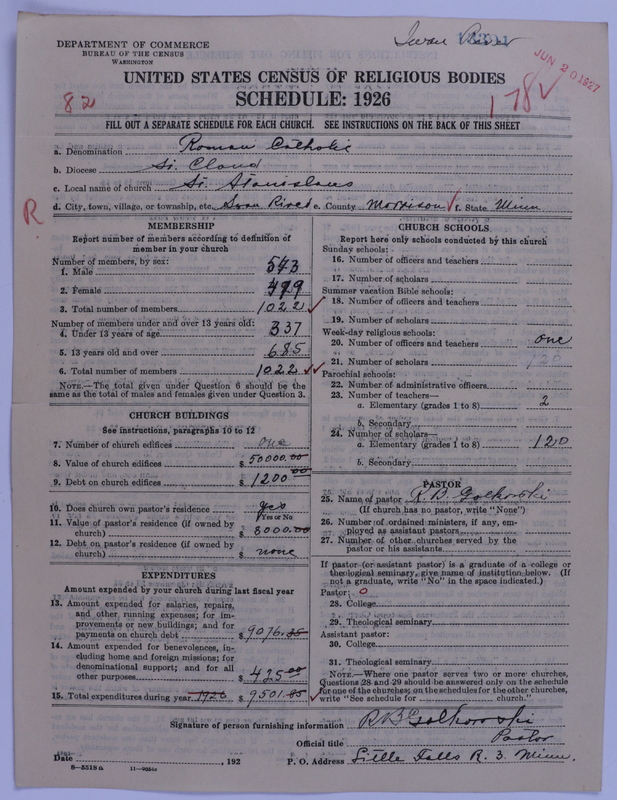 DEPARTMENT OF COMMERCE
BUREAU OF THE CENSUS
WASHINGTON
Swan River
JUN 20 1927
UNITED STATES CENSUS OF RELIGIOUS BODIES
SCHEDULE: 1926
82
178 ✓
FILL OUT A SEPARATE SCHEDULE FOR EACH CHURCH. SEE INSTRUCTIONS ON THE BACK OF THIS SHEET
a. Denomination Roman Catholic
b. Diocese St. Cloud
c. Local name of church St. Stanislaus
R
d. City, town, village, or township, etc. Swan River e. County Morrison ✓ f. State Minn
MEMBERSHIP
Report number of members according to definition of member in your church
Number of members, by sex:
1. Male 543
2. Female 479
3. Total number of members 1022 ✓
Number of members under and over 13 years old:
4. Under 13 years of age 337
5. 13 years old and over 685
6. Total number of members 1022 ✓✓
NOTE.—The total given under Question 6 should be the
same as the total of males and females given under Question 3.
CHURCH BUILDINGS
See instructions, paragraphs 10 to 12
7. Number of church edifices one
8. Value of church edifices $ 50000.00
9. Debt on church edifices $ 1200 00
10. Does church own pastor's residence yes
(Yes or No)
11. Value of pastor's residence (if owned by
church) $ 8000.00
12. Debt on pastor's residence (if owned by
church) $ none
EXPENDITURES
Amount expended by your church during last fiscal year
13. Amount expended for salaries, repairs,
and other running expenses; for im-
provements or new buildings; and for
payments on church debt $ 9076.85
14. Amount expended for benevolences, in-
cluding home and foreign missions; for
denominational support; and for all
other purposes $ 425 00
15. Total expenditures during year 1926 $ 9501.85 ✓
CHURCH SCHOOLS
Report here only schools conducted by this church
Sunday schools:
16. Number of officers and teachers
17. Number of scholars
Summer vacation Bible schools:
18. Number of officers and teachers
19. Number of scholars
Week-day religious schools:
20. Number of officers and teachers one
21. Number of scholars 120
Parochial schools:
22. Number of administrative officers
23. Number of teachers—
a. Elementary (grades 1 to 8) 2
b. Secondary
24. Number of scholars—
a. Elementary (grades 1 to 8) 120
b. Secondary
PASTOR
25. Name of pastor R B Golkowski
(If church has no pastor, write "None")
26. Number of ordained ministers, if any, em-
ployed as assistant pastors
27. Number of other churches served by the
pastor or his assistants
If pastor (or assistant pastor) is a graduate of a college or
theological seminary, give name of institution below. (If
not a graduate, write "No" in the space indicated.)
Pastor: 0
28. College
29. Theological seminary
Assistant pastor:
30. College
31. Theological seminary
NOTE.—Where one pastor serves two or more churches,
Questions 28 and 29 should be answered only on the schedule
for one of the churches; on the schedules for the other churches,
write "See schedule for church."
Signature of person furnishing information R B Golkowski
Official title Pastor
Date , 192 P. O. Address Little Falls R. 3. Minn.
8—5518 a 11—9054